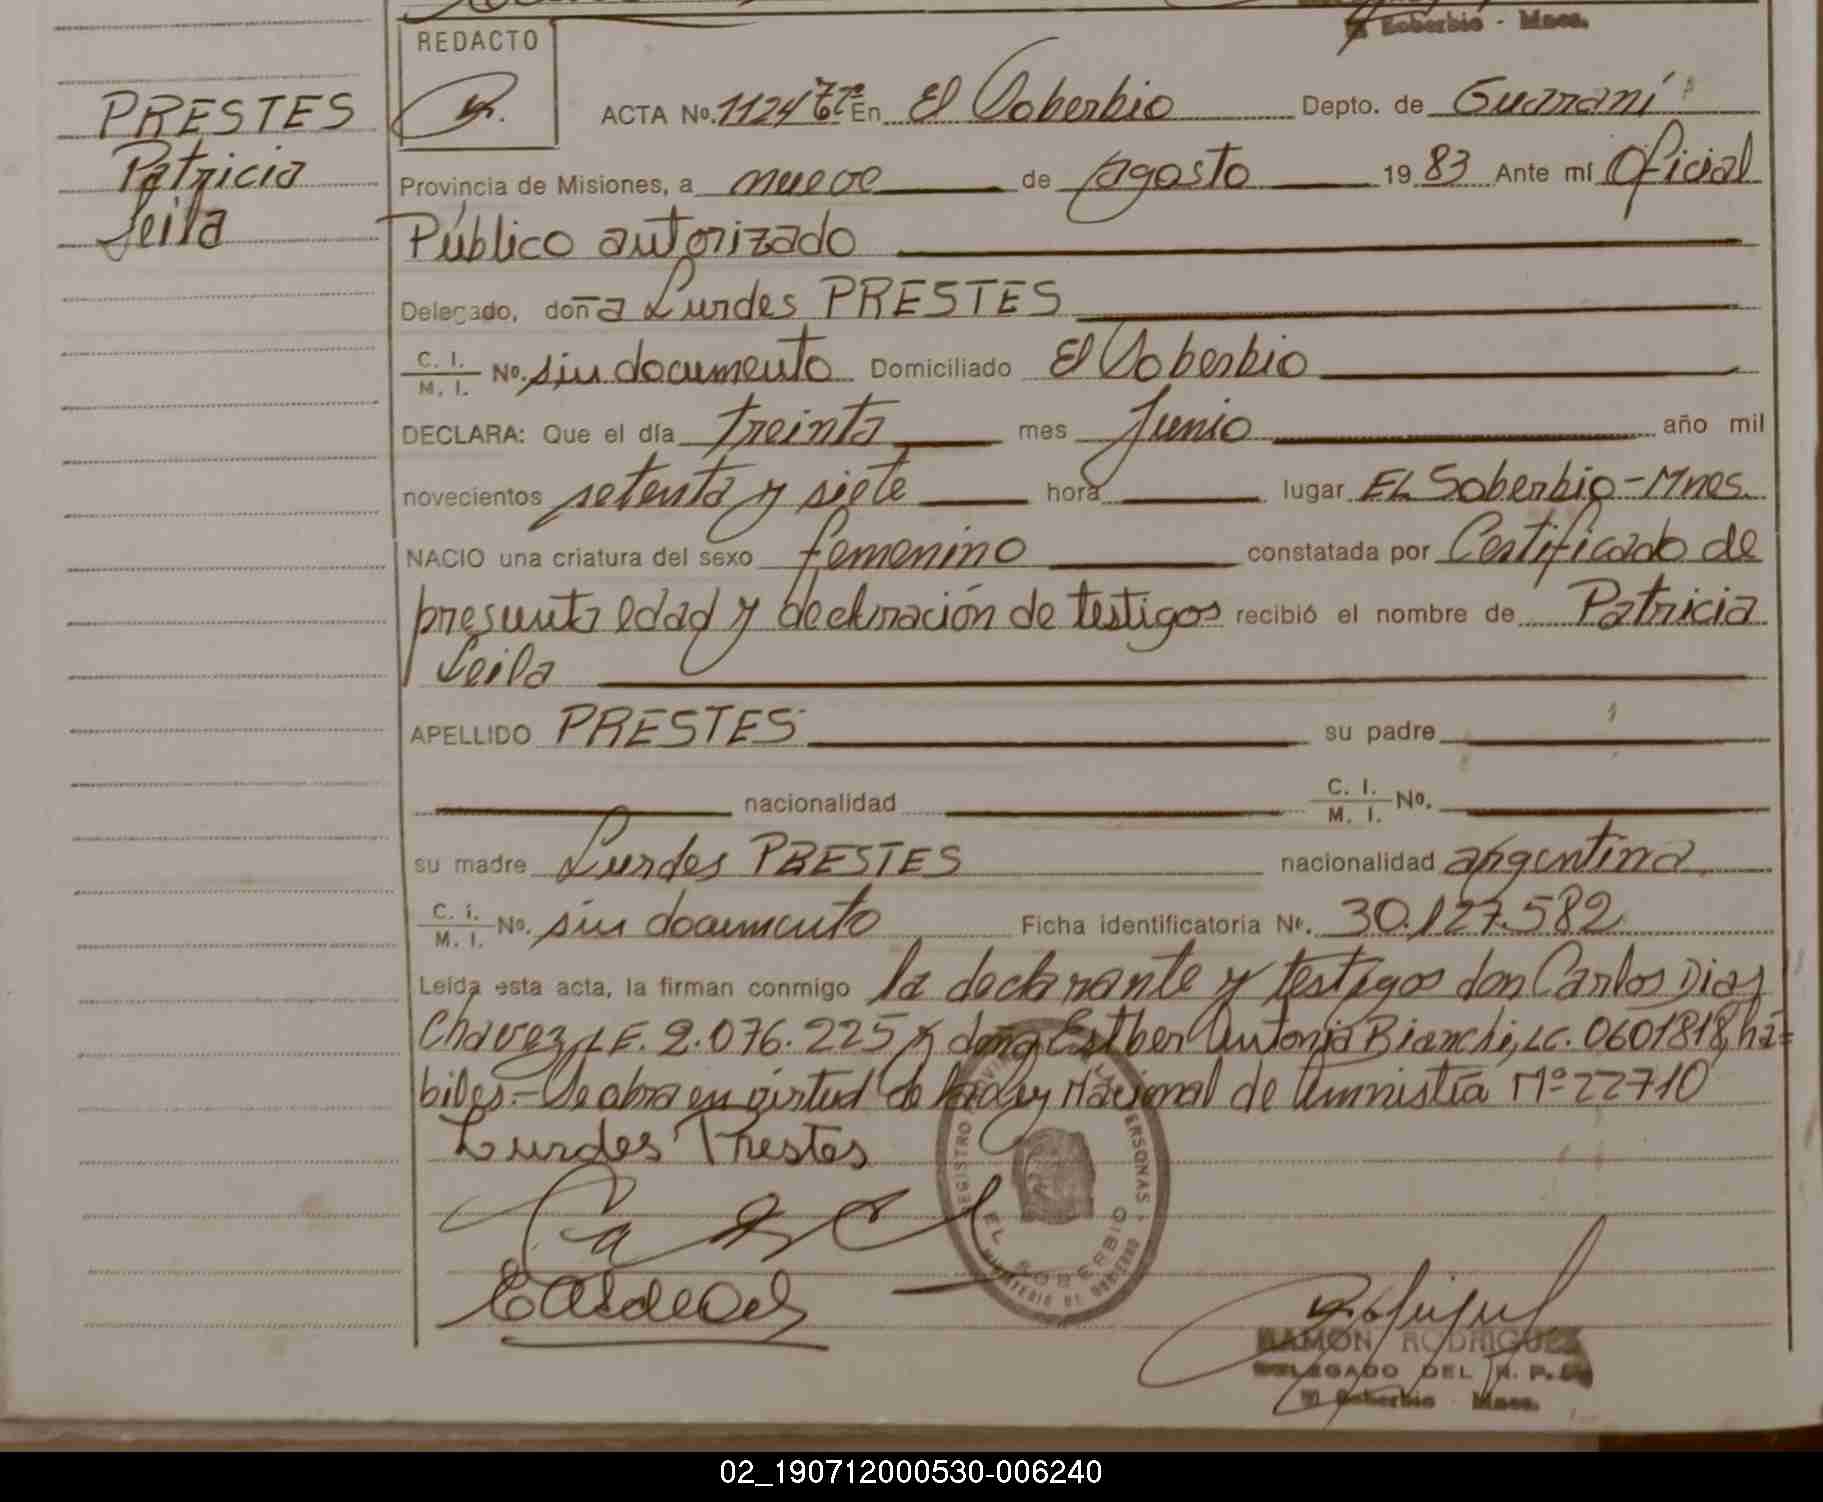 El Soberbio - Mnes.
REDACTO
PRESTES
Patricia
Leila
ACTA No. 1124 En El Soberbio Depto. de Guaraní
Provincia de Misiones, a nueve de Agosto 1983 Ante mí Oficial
Público autorizado
Delegado, doña Lurdes PRESTES
C. I. / M. I. No. sin documento Domiciliado El Soberbio
DECLARA: Que el día treinta mes Junio año mil
novecientos setenta y siete hora lugar EL Soberbio-Mnes.
NACIO una criatura del sexo femenino constatada por Certificado de
presunta edad y declaración de testigos recibió el nombre de Patricia
Leila
APELLIDO PRESTES su padre
nacionalidad C. I. / M. I. No.
su madre Lurdes PRESTES nacionalidad argentina
C. I. / M. I. No. sin documento Ficha identificatoria Nº. 30.127.582
Leída esta acta, la firman conmigo la declarante y testigos don Carlos Dias
Chavez, LE. 2.076.225 y doña Esther Antonia Bianchi, LC. 0601818, há=
biles.- Se obra en virtud de la Ley Nacional de Amnistía Nº 22710
Lurdes Prestes
EL SOBERBIO
MINISTERIO DE GOBIERNO
RAMON RODRIGUEZ
DELEGADO DEL R. P.
El Soberbio Mnes.
02_190712000530-006240